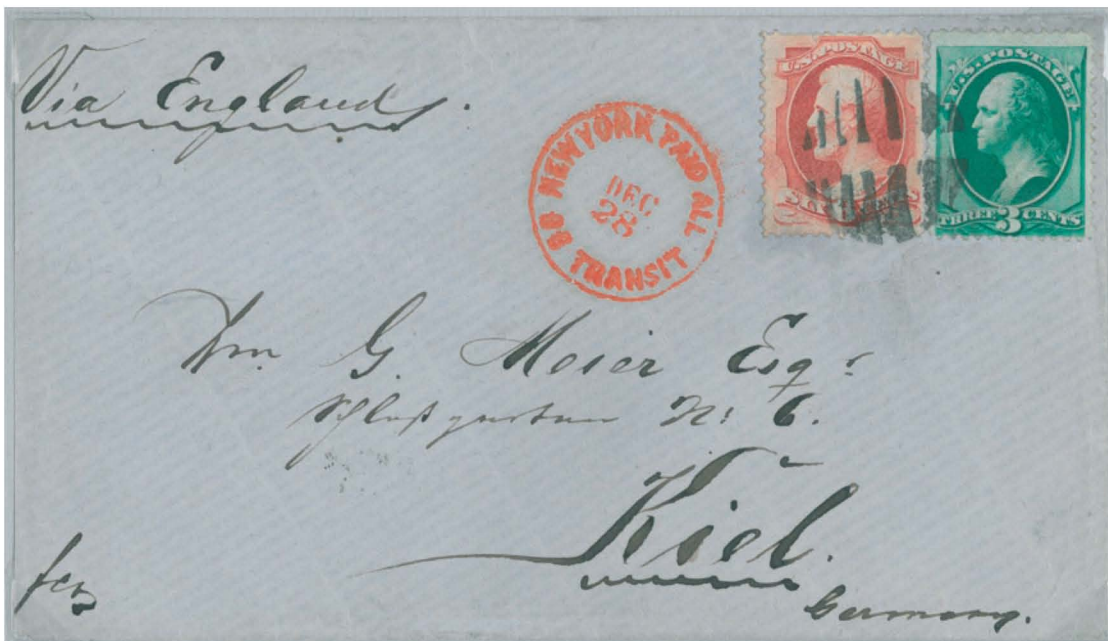 Via England.
U.S. POSTAGE
U.S. POSTAGE
THREE 3 CENTS
NEW YORK PAID ALL
DEC
28
BR TRANSIT
G. Meier Esqr
Schloßgarten N: 6.
Kiel.
Germany.